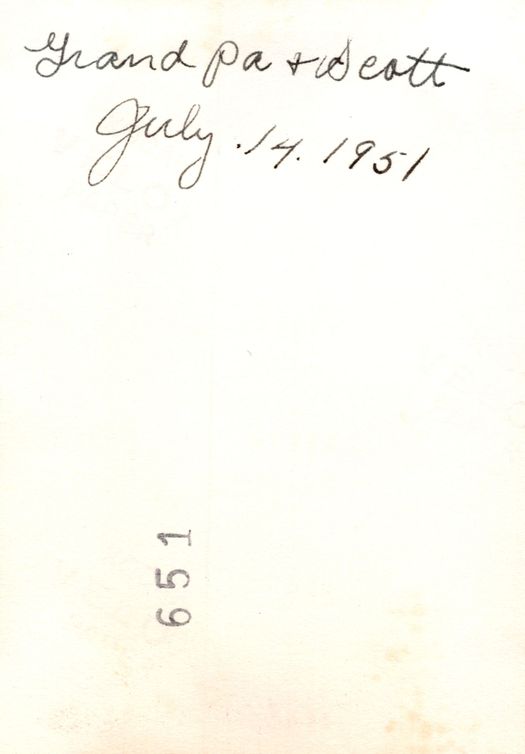 Grand pa + Scott
July .14. 1951
651